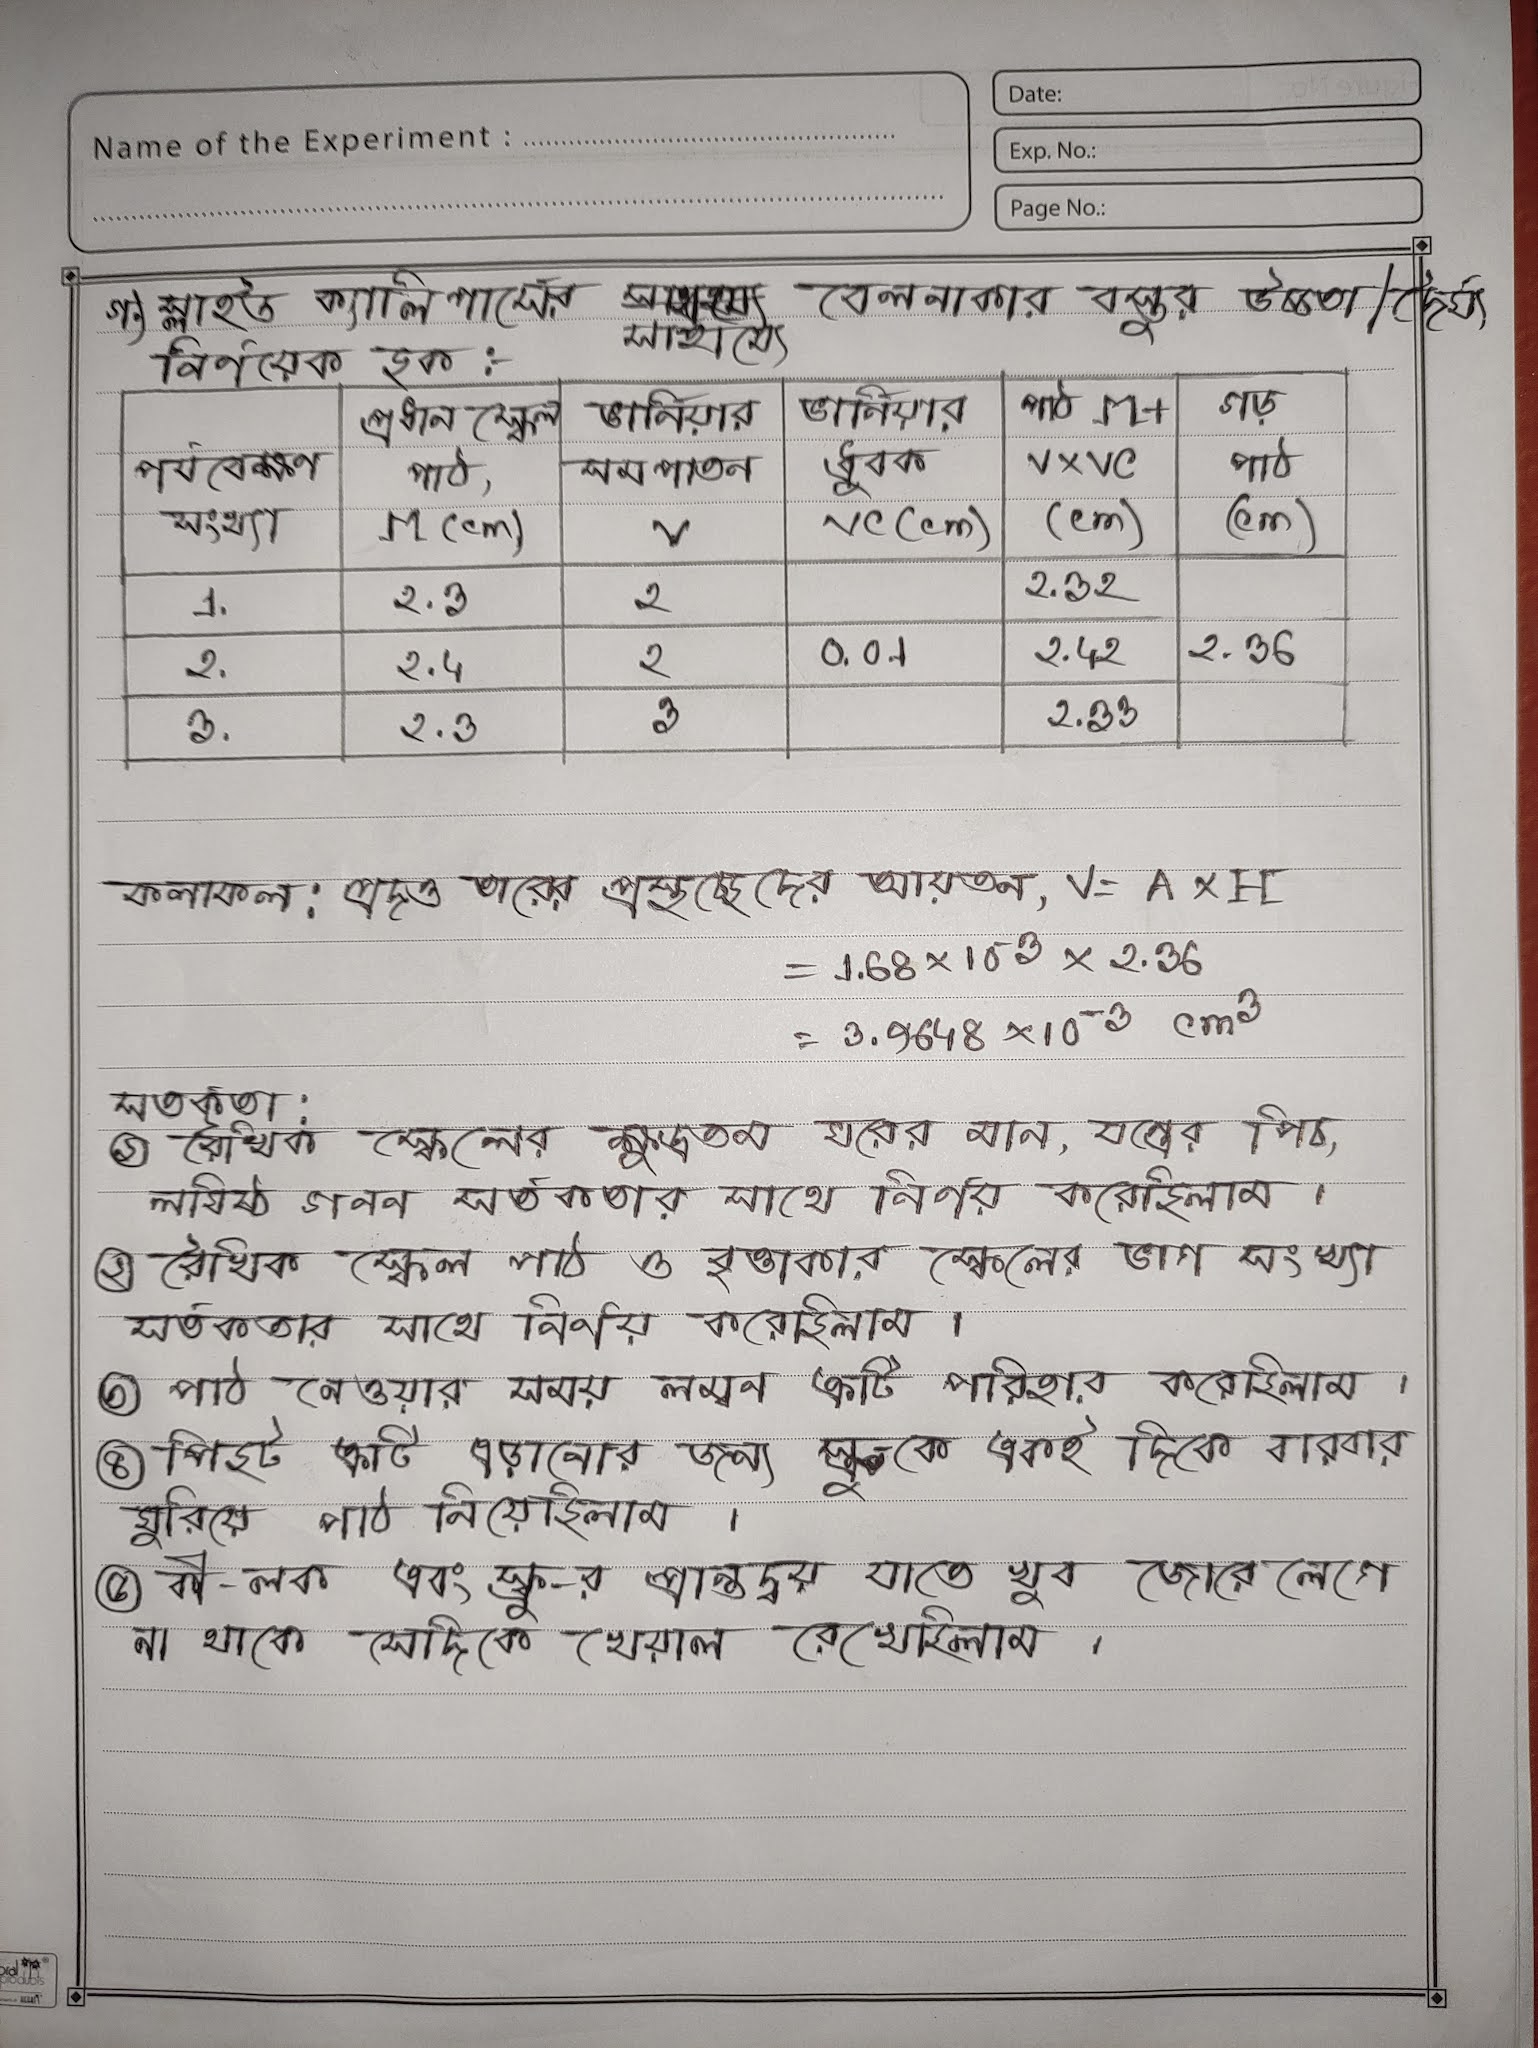 Name of the Experiment : ........................................
Date:
Exp. No.:
Page No.:
গ) স্লাইড ক্যালিপার্সের সাহায্যে বেলনাকার বস্তুর উচ্চতা/দৈর্ঘ্য
নির্ণয়েক ছক :-
পর্যবেক্ষণ সংখ্যা | প্রধান স্কেল পাঠ, M (cm) | ভার্নিয়ার সমপাতন V | ভার্নিয়ার ধ্রুবক VC (cm) | পাঠ M+ V×VC (cm) | গড় পাঠ (cm)
1. 2.3 2 2.32
2. 2.4 2 0.01 2.42 2.36
3. 2.3 3 2.33
ফলাফল : প্রদত্ত তারের প্রস্থচ্ছেদের আয়তন, V = A × H
= 1.68 × 10⁻³ × 2.36
= 3.9648 × 10⁻³ cm³
সতর্কতা :
① রৈখিক স্কেলের ক্ষুদ্রতম ঘরের মান, যন্ত্রের পিচ,
লঘিষ্ঠ গনন সর্তকতার সাথে নির্ণয় করেছিলাম ।
② রৈখিক স্কেল পাঠ ও বৃত্তাকার স্কেলের ভাগ সংখ্যা
সর্তকতার সাথে নির্ণয় করেছিলাম ।
③ পাঠ নেওয়ার সময় লম্বন ত্রুটি পরিহার করেছিলাম ।
④ পিছট ত্রুটি এড়ানোর জন্য স্ক্রুকে একই দিকে বারবার
ঘুরিয়ে পাঠ নিয়েছিলাম ।
⑤ কী-লক এবং স্ক্রু-র প্রান্তদ্বয় যাতে খুব জোরে লেগে
না থাকে সেদিকে খেয়াল রেখেছিলাম ।